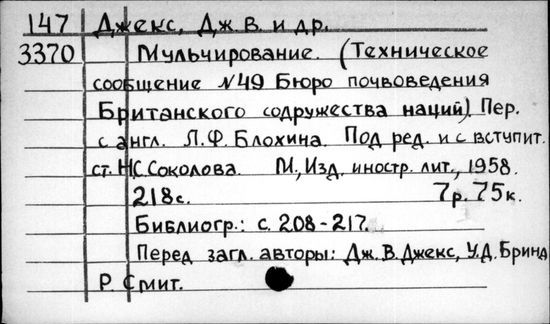 147 Джекс, Дж. В. и др.
3370 Мульчирование. (Техническое
сообщение №49 Бюро почвоведения
Британского содружества наций) Пер.
с англ. Л.Ф. Блохина. Под ред. и с вступит.
ст. Н.С. Соколова. М., Изд. иностр. лит., 1958.
218с. 7р. 75к.
Библиогр.: с. 208-217.
Перед загл. авторы: Дж. В. Джекс, У.Д. Бринд
Р. Смит.